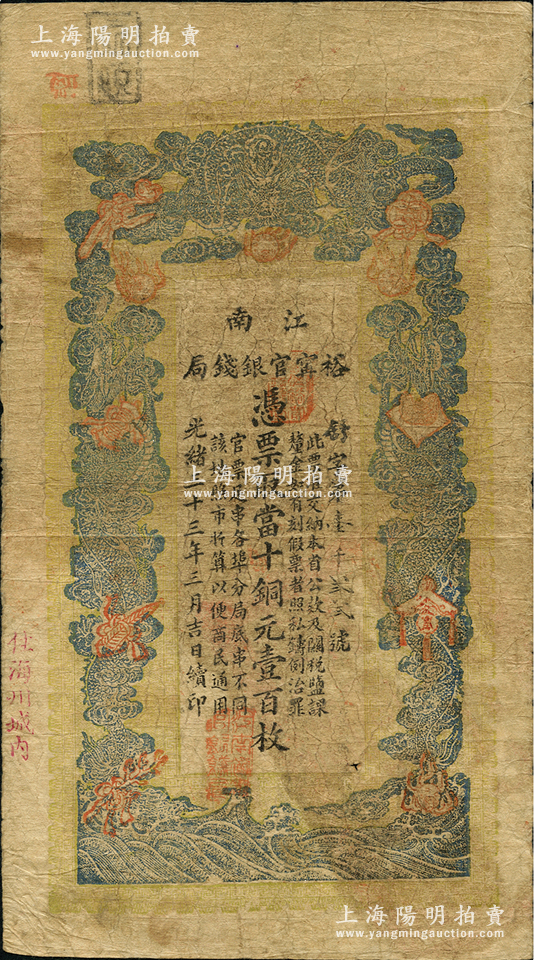 上海陽明拍賣
www.yangmingauction.com
江南
裕甯官銀錢局
字第壹千貳弍號
此票准交納本省公款及關稅鹽課
釐金如有刻假票者照私鑄例治罪
憑票 當十銅元壹百枚
官票 串各埠分局底串不同
該 市折算以便商民通用
光緒 十三年三月吉日續印
住海州城內
上海陽明拍賣
www.yangmingauction.com
上海陽明拍賣
www.yangmingauction.com